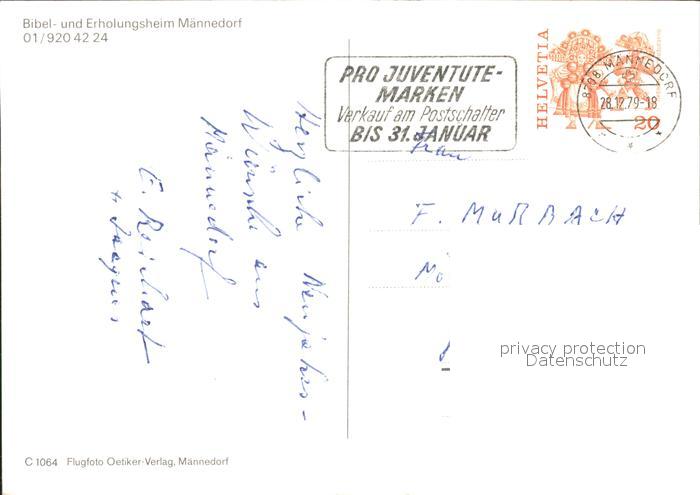 Bibel- und Erholungsheim Männedorf
01/920 42 24
PRO JUVENTUTE-
MARKEN
Verkauf am Postschalter
BIS 31. JANUAR
HELVETIA
20
8708 MÄNNEDORF
28.12.79-18
Herzliche Neujahrs-
Wünsche aus
Männedorf
E. Reichart
Frau
F. MURBACH
Mö
privacy protection
Datenschutz
C 1064 Flugfoto Oetiker-Verlag, Männedorf